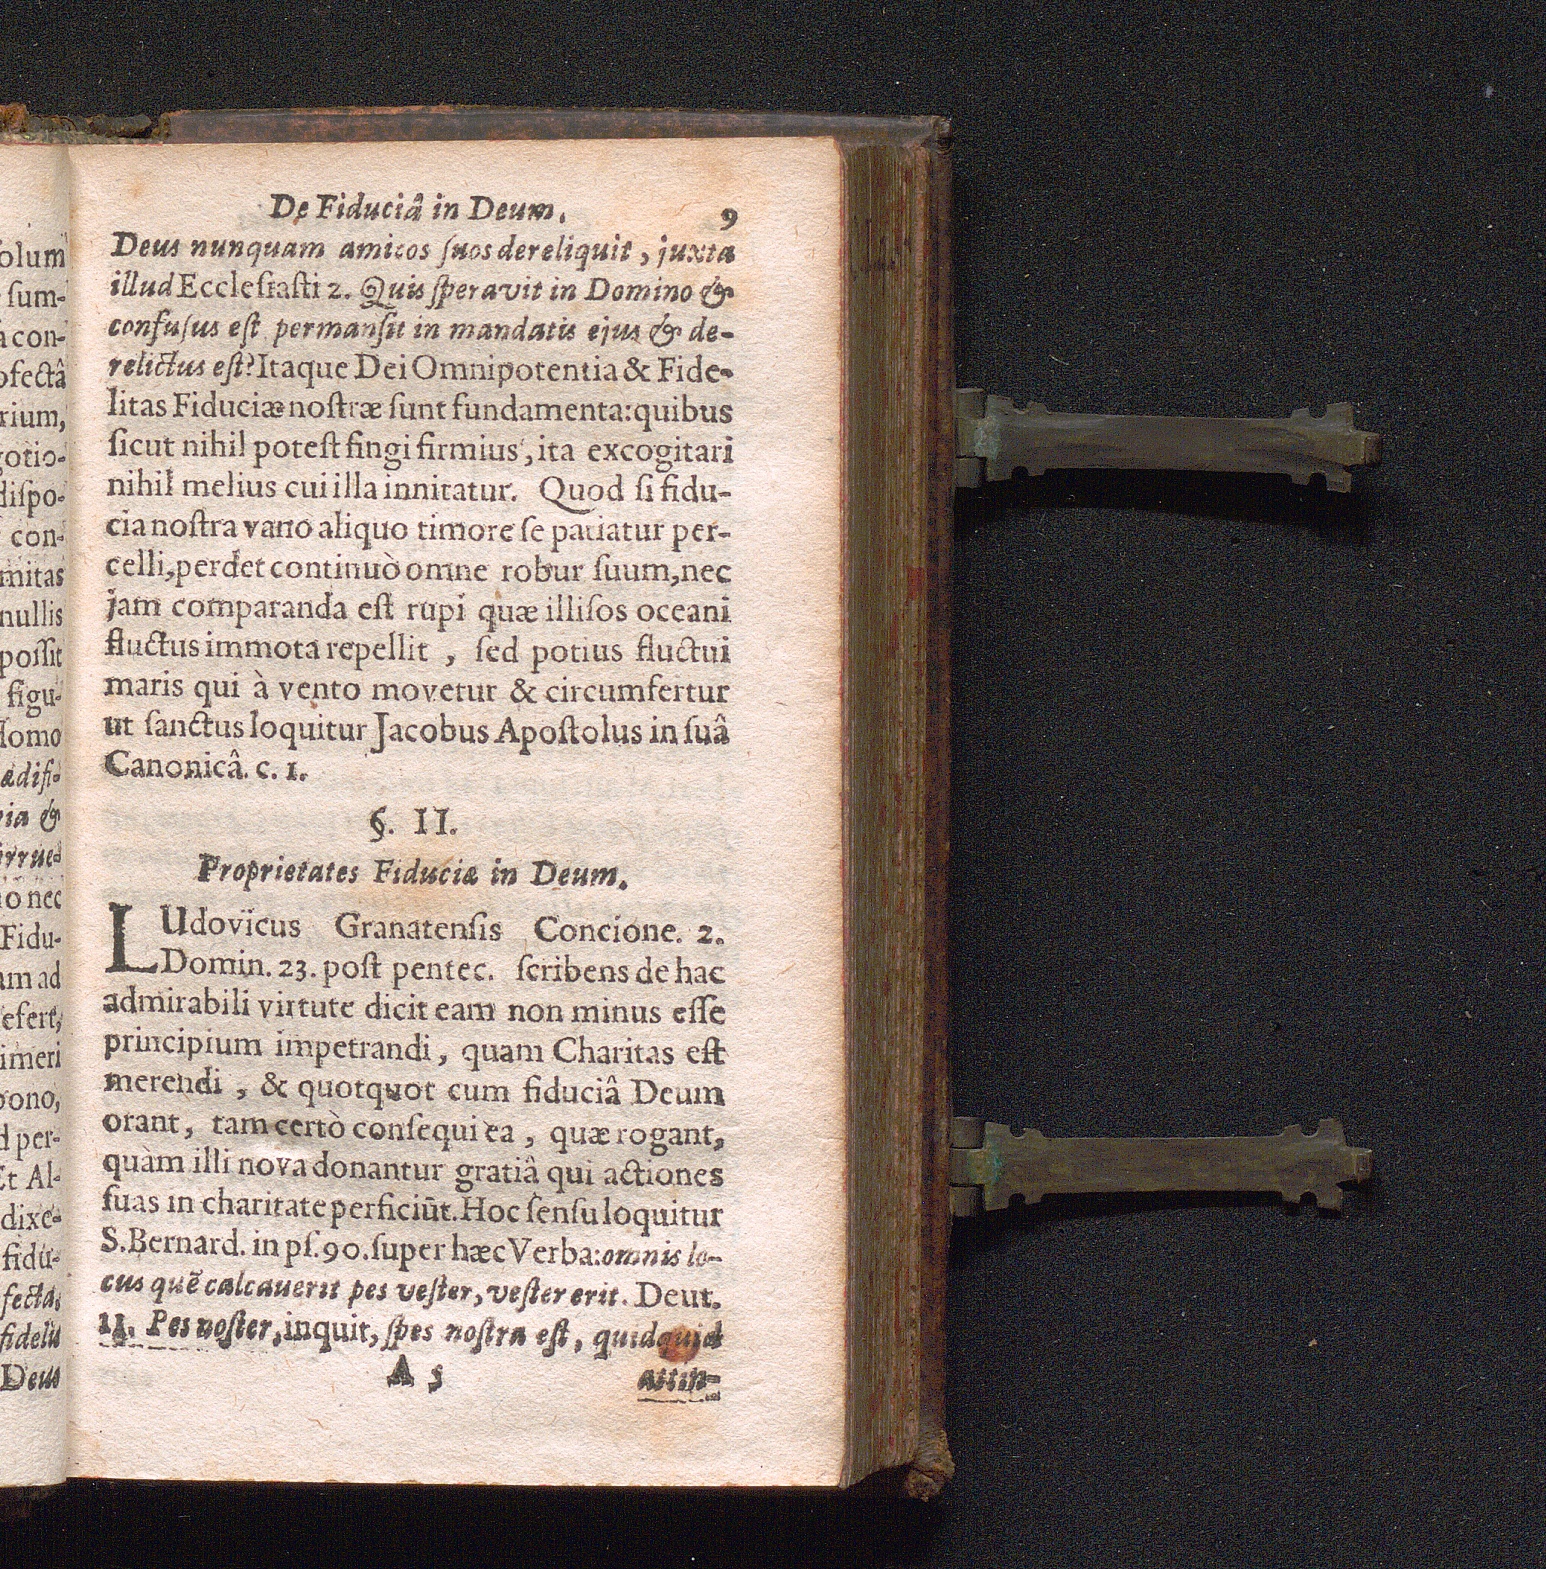 De Fiduciâ in Deum. 9
Deus nunquam amicos ſuos dereliquit, juxta
illud Eccleſiaſti 2. Quis ſperavit in Domino &
confuſus eſt permanſit in mandatis ejus & de-
relictus eſt? Itaque Dei Omnipotentia & Fide-
litas Fiduciæ noſtræ ſunt fundamenta: quibus
ſicut nihil poteſt fingi firmius, ita excogitari
nihil melius cui illa innitatur. Quod ſi fidu-
cia noſtra vano aliquo timore ſe patiatur per-
celli, perdet continuò omne robur ſuum, nec
jam comparanda eſt rupi quæ illiſos oceani
fluctus immota repellit, ſed potius fluctui
maris qui à vento movetur & circumfertur
ut ſanctus loquitur Jacobus Apoſtolus in ſuâ
Canonicâ. c. 1.
§. II.
Proprietates Fiduciæ in Deum.
LUdovicus Granatenſis Concione. 2.
Domin. 23. poſt pentec. ſcribens de hac
admirabili virtute dicit eam non minus eſſe
principium impetrandi, quam Charitas eſt
merendi, & quotquot cum fiduciâ Deum
orant, tam certò conſequi ea, quæ rogant,
quàm illi nova donantur gratiâ qui actiones
ſuas in charitate perficiūt. Hoc ſenſu loquitur
S. Bernard. in pſ. 90. ſuper hæc Verba: omnis lo-
cus quē calcauerit pes veſter, veſter erit. Deut.
11. Pes noſter, inquit, ſpes noſtra eſt, quidquid
A 5 attin-
olum
ſum-
con-
ofectâ
rium,
gotio-
diſpo-
con-
mitas
nullis
poſſit
figu-
domo
ædifi-
&
irrue-
nec
Fidu-
am ad
efert,
imeri
pono,
per-
Et Al-
dixe-
fidu-
fecta,
fidelis
Deus